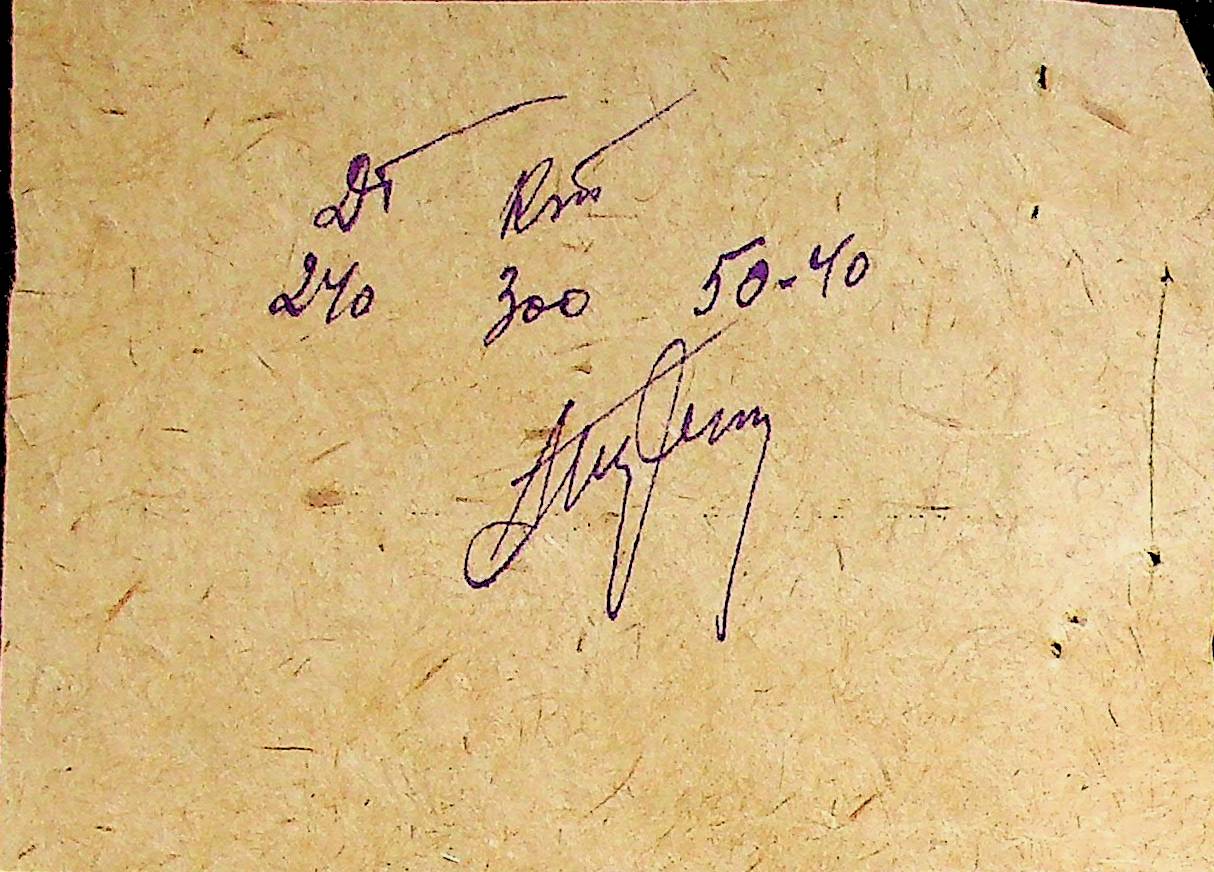 Дт Кт
240 300 50-40